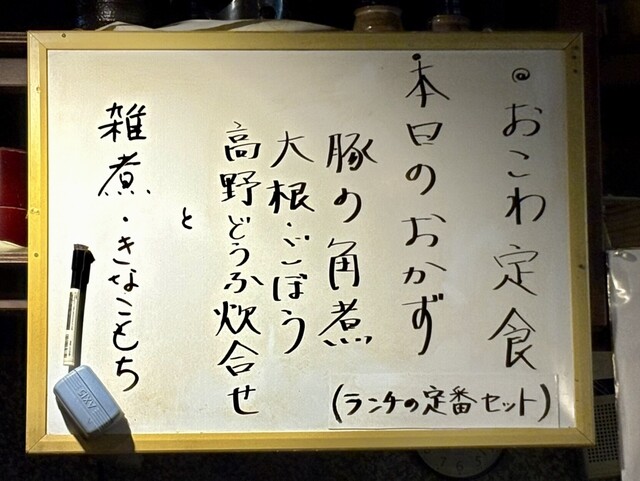 @おこわ定食
(ランチの定番セット)
本日のおかず
豚の角煮
大根・ごぼう
高野どうふ炊合せ
と
雑煮・きなこもち